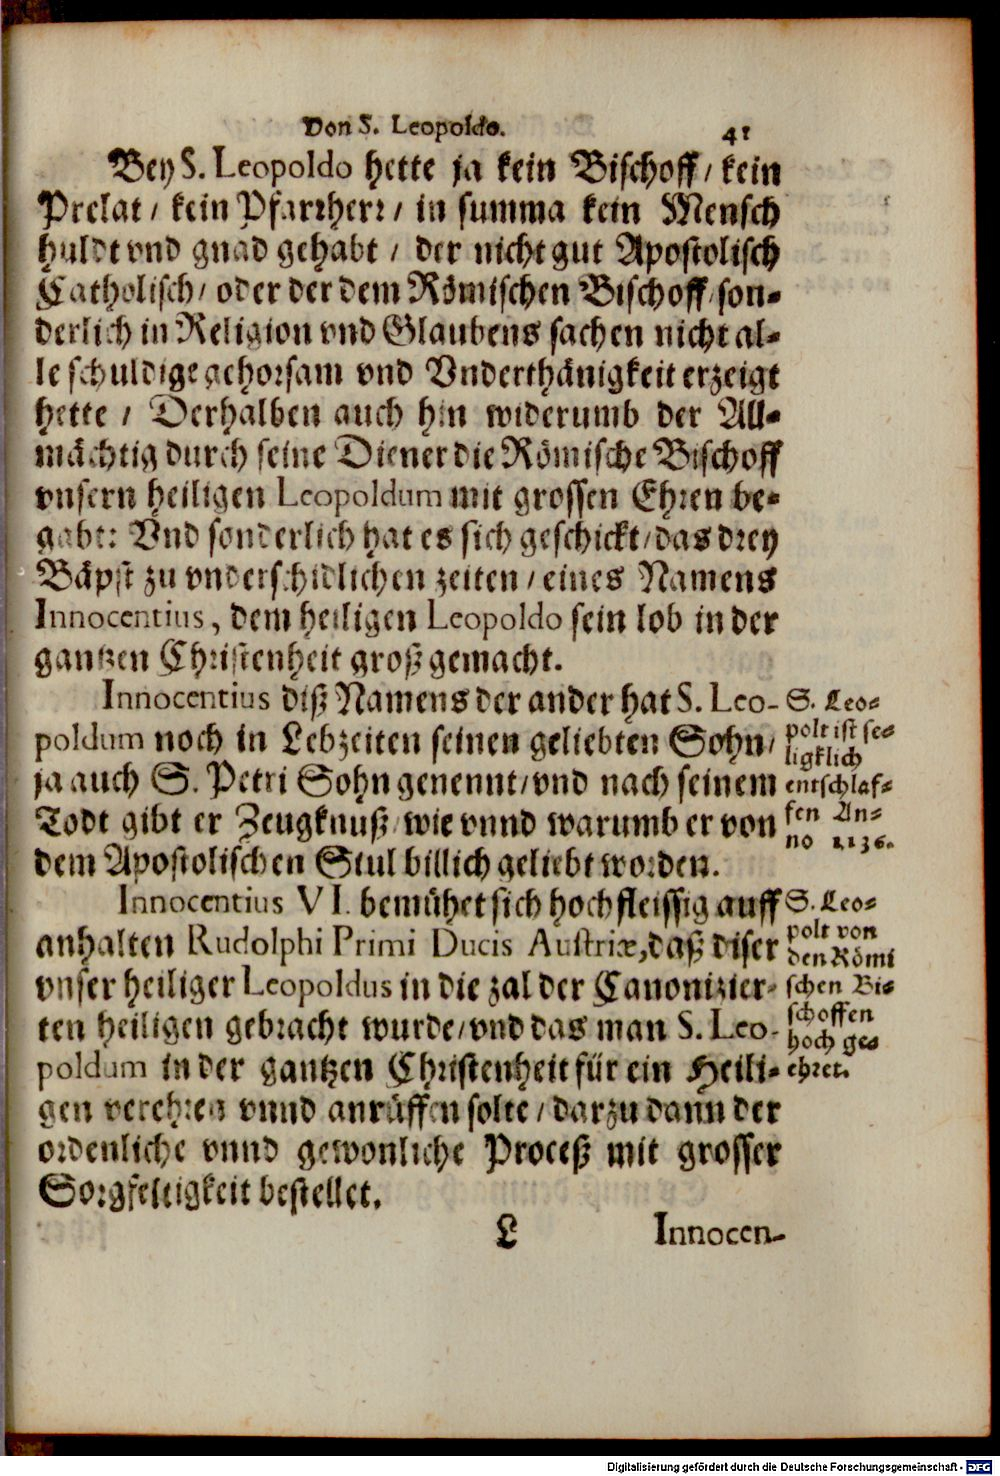 Von S. Leopoldo. 41
Bey S. Leopoldo hette ja kein Bischoff / kein
Prelat / kein Pfarrherr / in summa kein Mensch
huldt vnd gnad gehabt / der nicht gut Apostolisch
Catholisch / oder der dem Römischen Bischoff / son-
derlich in Religion vnd Glaubens sachen nicht al-
le schuldige gehorsam vnd Vnderthänigkeit erzeigt
hette / Derhalben auch hin widerumb der All-
mächtig durch seine Diener die Römische Bischoff
vnsern heiligen Leopoldum mit grossen Ehren be-
gabt: Vnd sonderlich hat es sich geschickt / das drey
Bäpst zu vnderschidlichen zeiten / eines Namens
Innocentius, dem heiligen Leopoldo sein lob in der
gantzen Christenheit groß gemacht.
Innocentius diß Namens der ander hat S. Leo-
poldum noch in Lebzeiten seinen geliebten Sohn /
ja auch S. Petri Sohn genennt / vnd nach seinem
Todt gibt er Zeugknuß / wie vnnd warumb er von
dem Apostolischen Stul billich geliebt worden.
S. Leo-
polt ist se-
ligklich
entschlaf-
fen An-
no 1136.
Innocentius VI. bemühet sich hochfleissig auff
anhalten Rudolphi Primi Ducis Austriæ, daß diser
vnser heiliger Leopoldus in die zal der Canonizier-
ten heiligen gebracht wurde / vnd das man S. Leo-
poldum in der gantzen Christenheit für ein Heili-
gen verehren vnnd anrüffen solte / darzu dann der
ordenliche vnnd gewonliche Proceß mit grosser
Sorgfeltigkeit bestellet.
S. Leo-
polt von
den Römi
schen Bi-
schoffen
hoch ge-
ehret.
L Innocen-
Digitalisierung gefördert durch die Deutsche Forschungsgemeinschaft - DFG